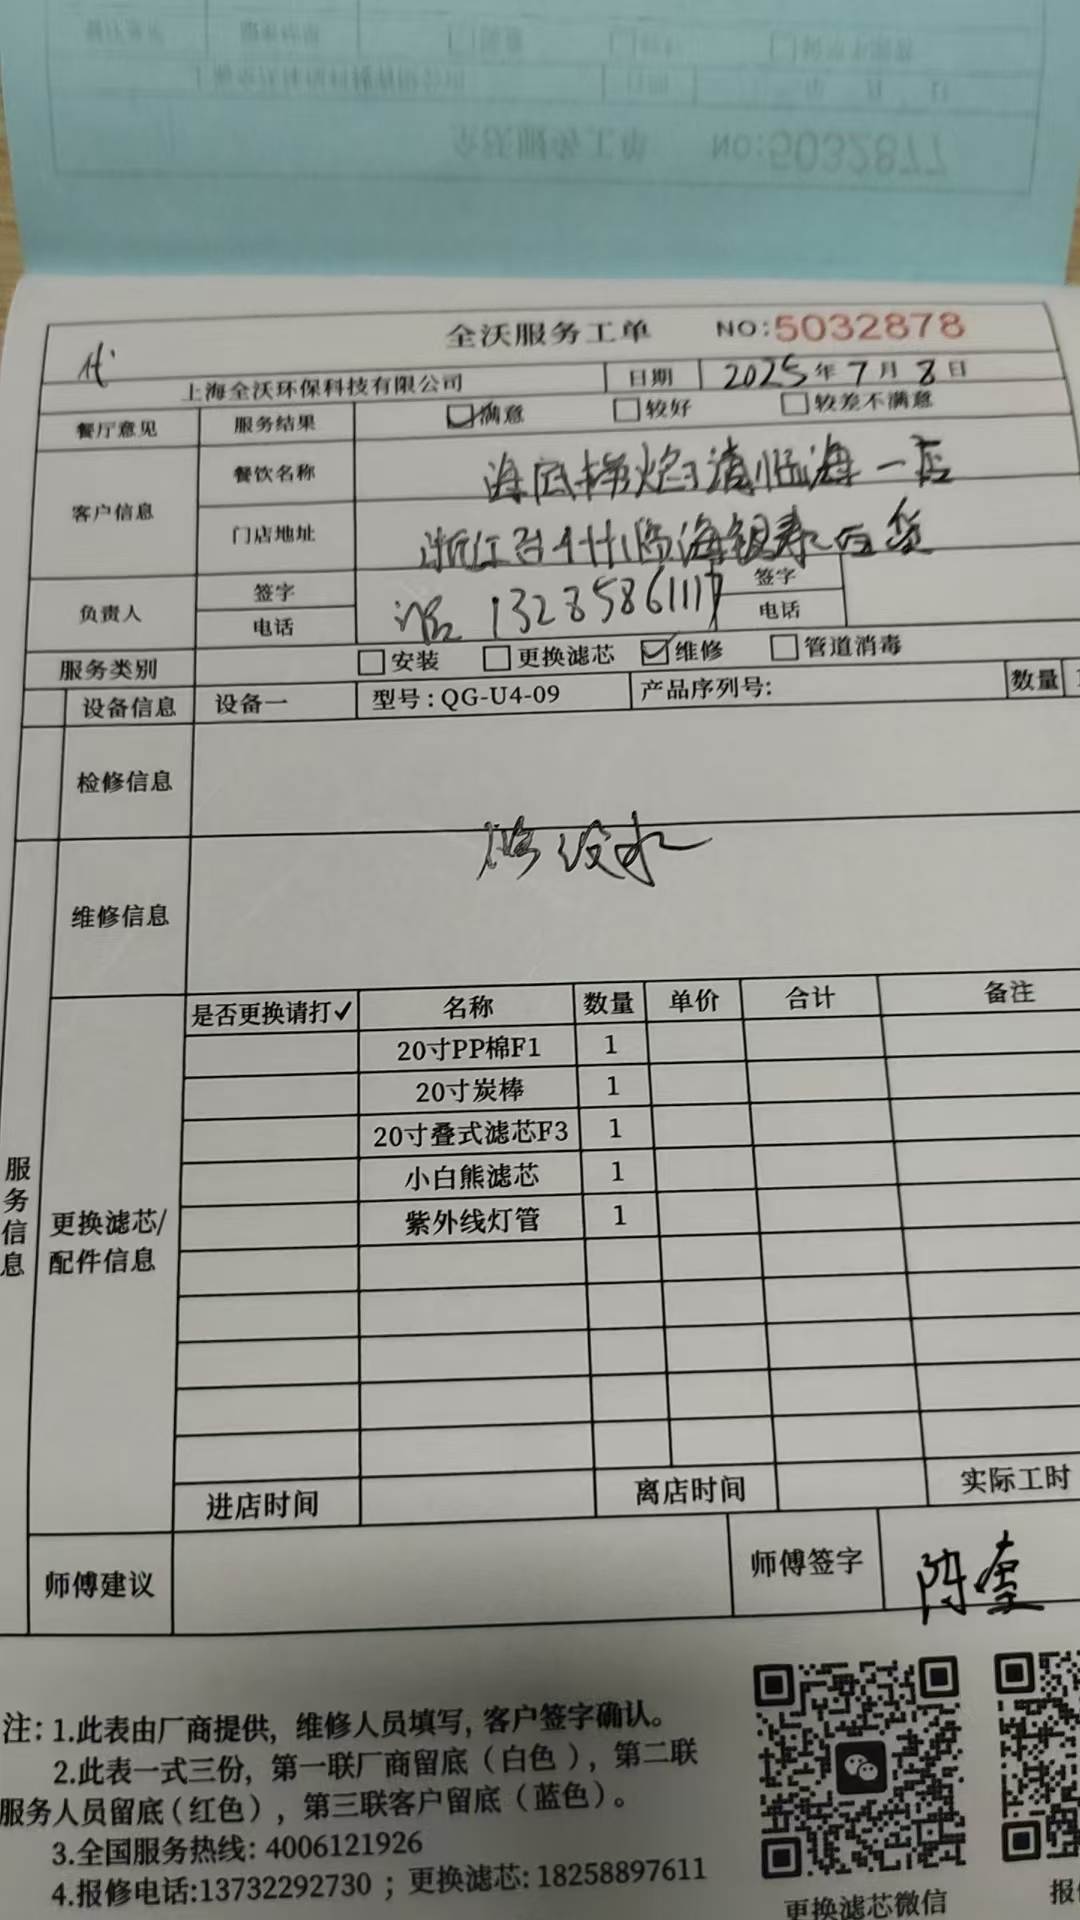 NO:5032877
全沃服务工单 NO:5032878
代
上海全沃环保科技有限公司 日期 2025年7月8日
餐厅意见 服务结果 满意 较好 较差不满意
客户信息 餐饮名称 海底捞火锅 临海一店
门店地址 浙江台州临海银泰百货
负责人 签字 签字
电话 13285861117 电话
服务类别 安装 更换滤芯 维修 管道消毒
设备信息 设备一 型号:QG-U4-09 产品序列号: 数量
检修信息
维修信息
修 没水
服务信息
更换滤芯/配件信息
是否更换请打✓ 名称 数量 单价 合计 备注
20寸PP棉F1 1
20寸炭棒 1
20寸叠式滤芯F3 1
小白熊滤芯 1
紫外线灯管 1
进店时间 离店时间 实际工时
师傅建议 师傅签字 陈奎
注: 1.此表由厂商提供, 维修人员填写, 客户签字确认。
2.此表一式三份, 第一联厂商留底（白色）, 第二联
服务人员留底（红色）, 第三联客户留底（蓝色）。
3.全国服务热线: 4006121926
4.报修电话:13732292730 ; 更换滤芯: 18258897611
更换滤芯微信
报修